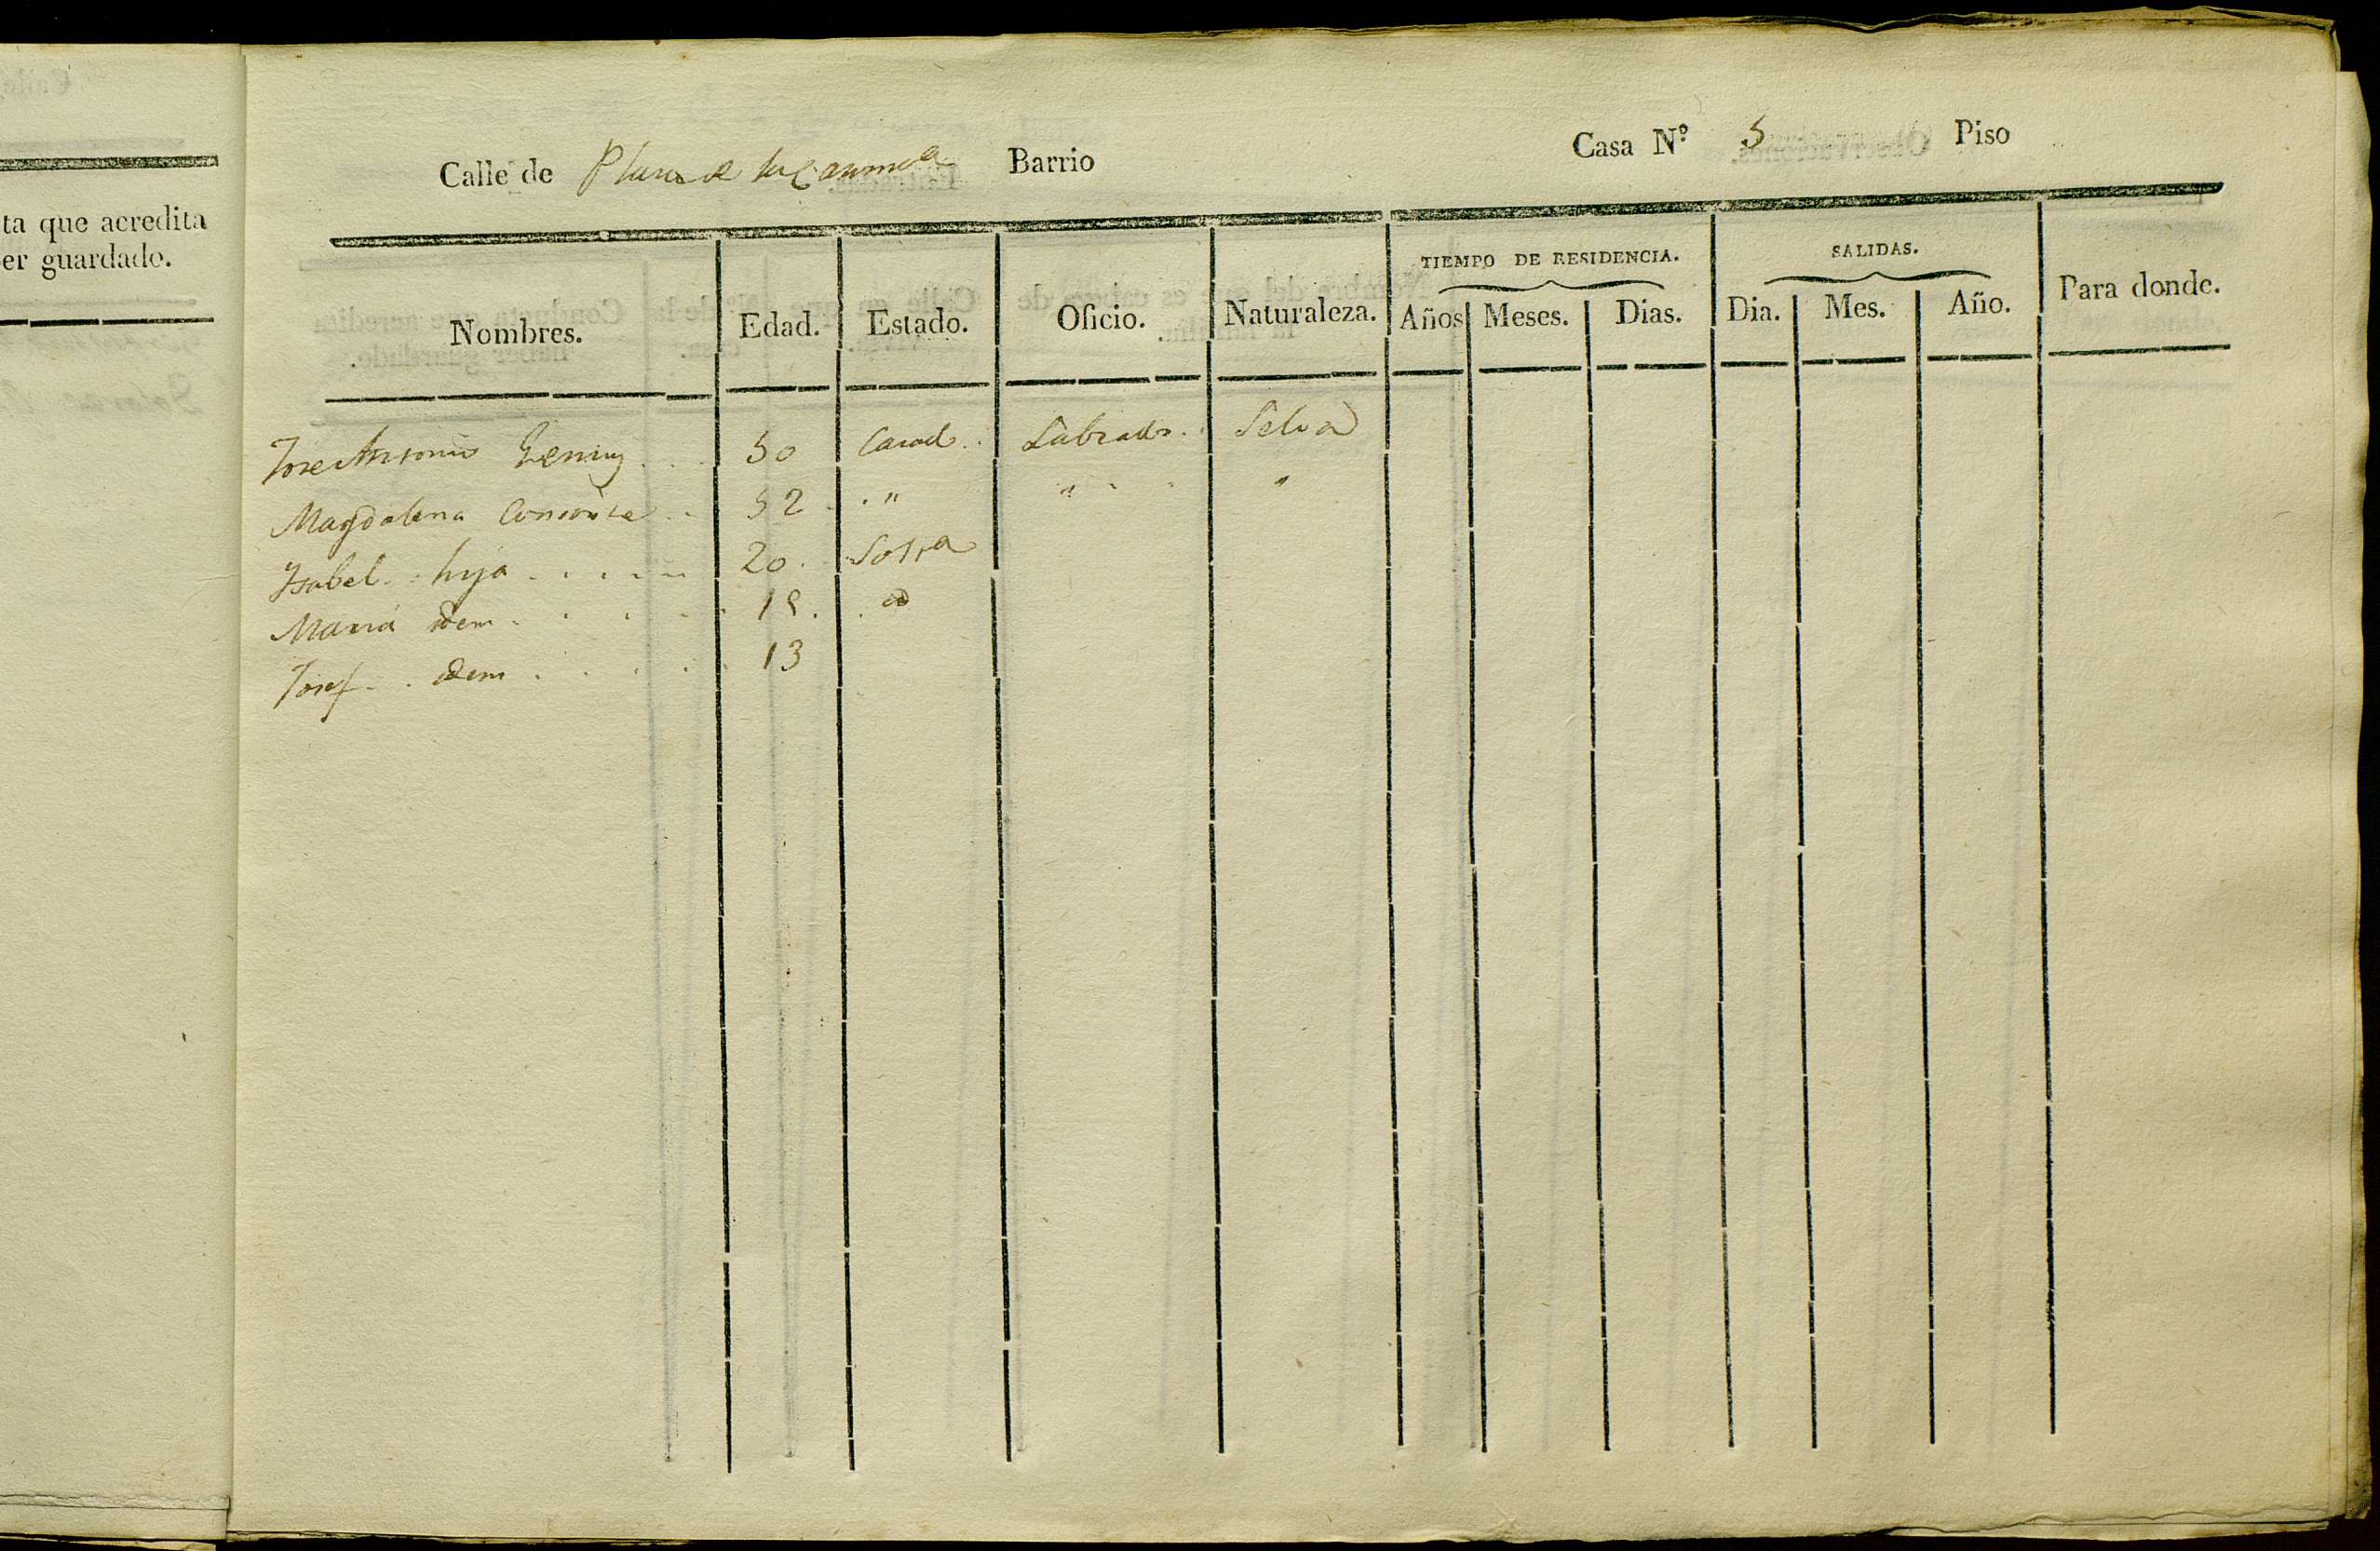 ta que acredita
er guardado.
Calle de Plaza de la Barrio Casa Nº 5 Piso
Nombres. Edad. Estado. Oficio. Naturaleza. TIEMPO DE RESIDENCIA. Años Meses. Dias. SALIDAS. Dia. Mes. Año. Para donde.
Jose Antonio 50 Casad. Labrador. Selva
Magdalena Consorte 52 " " "
Isabel hija 20. Solta
Maria idem 18. id
Josef idem 13